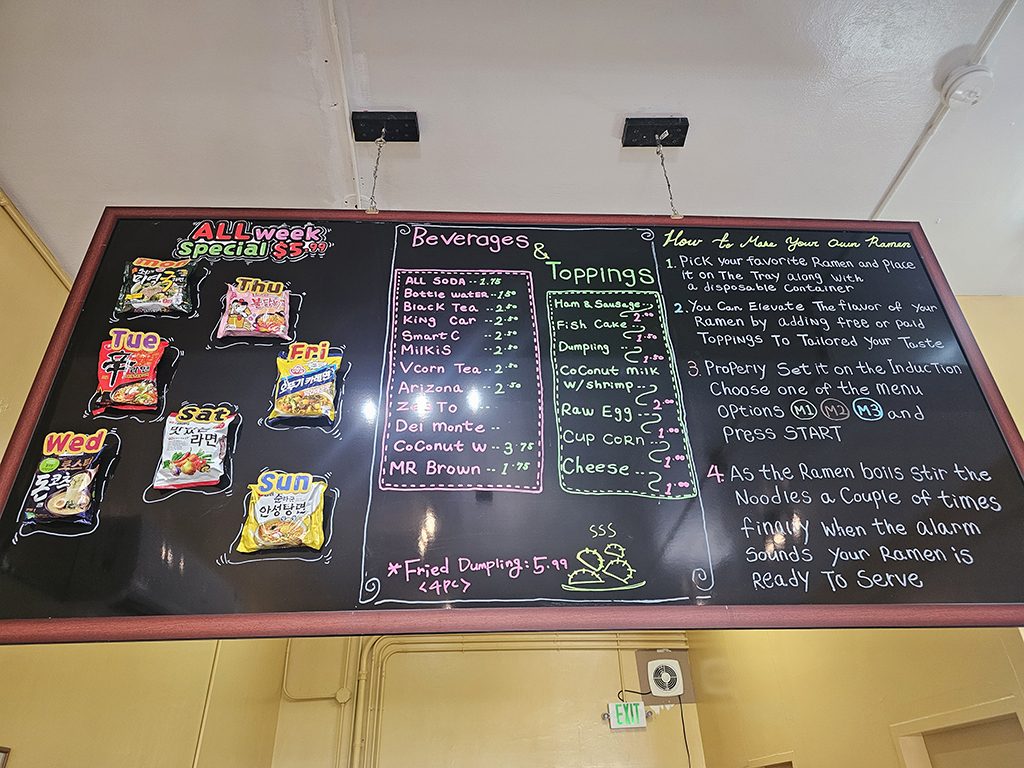 ALL week
special $5.99
Mon
Thu
Tue
辛
Fri
오뚜기 카레면
Sat
라면
Wed
돈코츠
Sun
안성탕면
Beverages
&
Toppings
ALL SODA -- 1.75
Bottle water -- 1.50
Black Tea -- 2.50
King Car -- 2.50
Smart C -- 2.50
Milkis -- 2.50
Vcorn Tea -- 2.50
Arizona -- 2.50
Zesto --
Del monte --
Coconut w -- 3.75
MR Brown -- 1.75
Ham & Sausage --
2.00
Fish Cake --
1.50
Dumpling --
1.50
Coconut milk
w/shrimp --
2.00
Raw Egg --
1.00
Cup Corn --
1.00
Cheese --
1.00
*Fried Dumpling: 5.99
<4pc>
SSS
How to Make Your Own Ramen
1. Pick your favorite Ramen and Place
it on The Tray along with
a disposable Container
2. You Can Elevate The flavor of Your
Ramen by adding free or paid
Toppings To Tailored Your Taste
3. Properly Set it on the Induction
Choose one of the menu
Options M1 M2 M3 and
Press START
4. As the Ramen boils stir the
Noodles a Couple of times
finally when the alarm
Sounds your Ramen is
Ready To Serve
EXIT